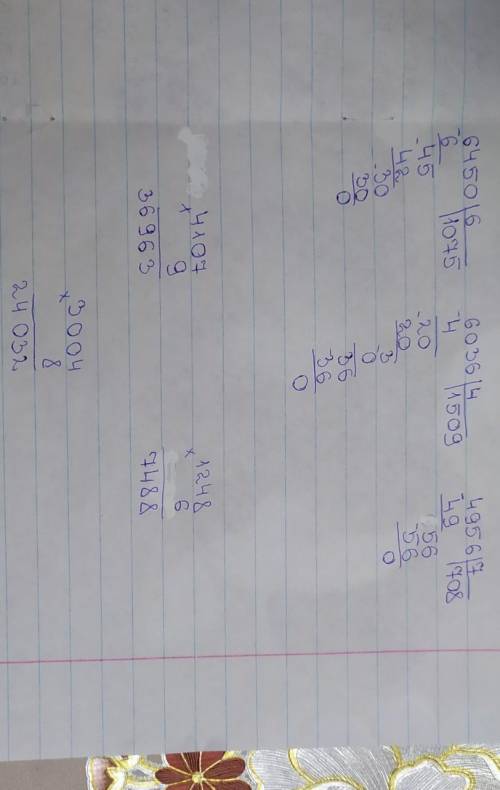 6450 | 6
-6 | 1075
-45
42
-30
30
0
6036 | 4
-4 | 1509
-20
20
3
0
36
36
0
4956 | 7
-49 | 708
-56
56
0
× 4107
9
36963
× 1248
6
7488
× 3004
8
24032